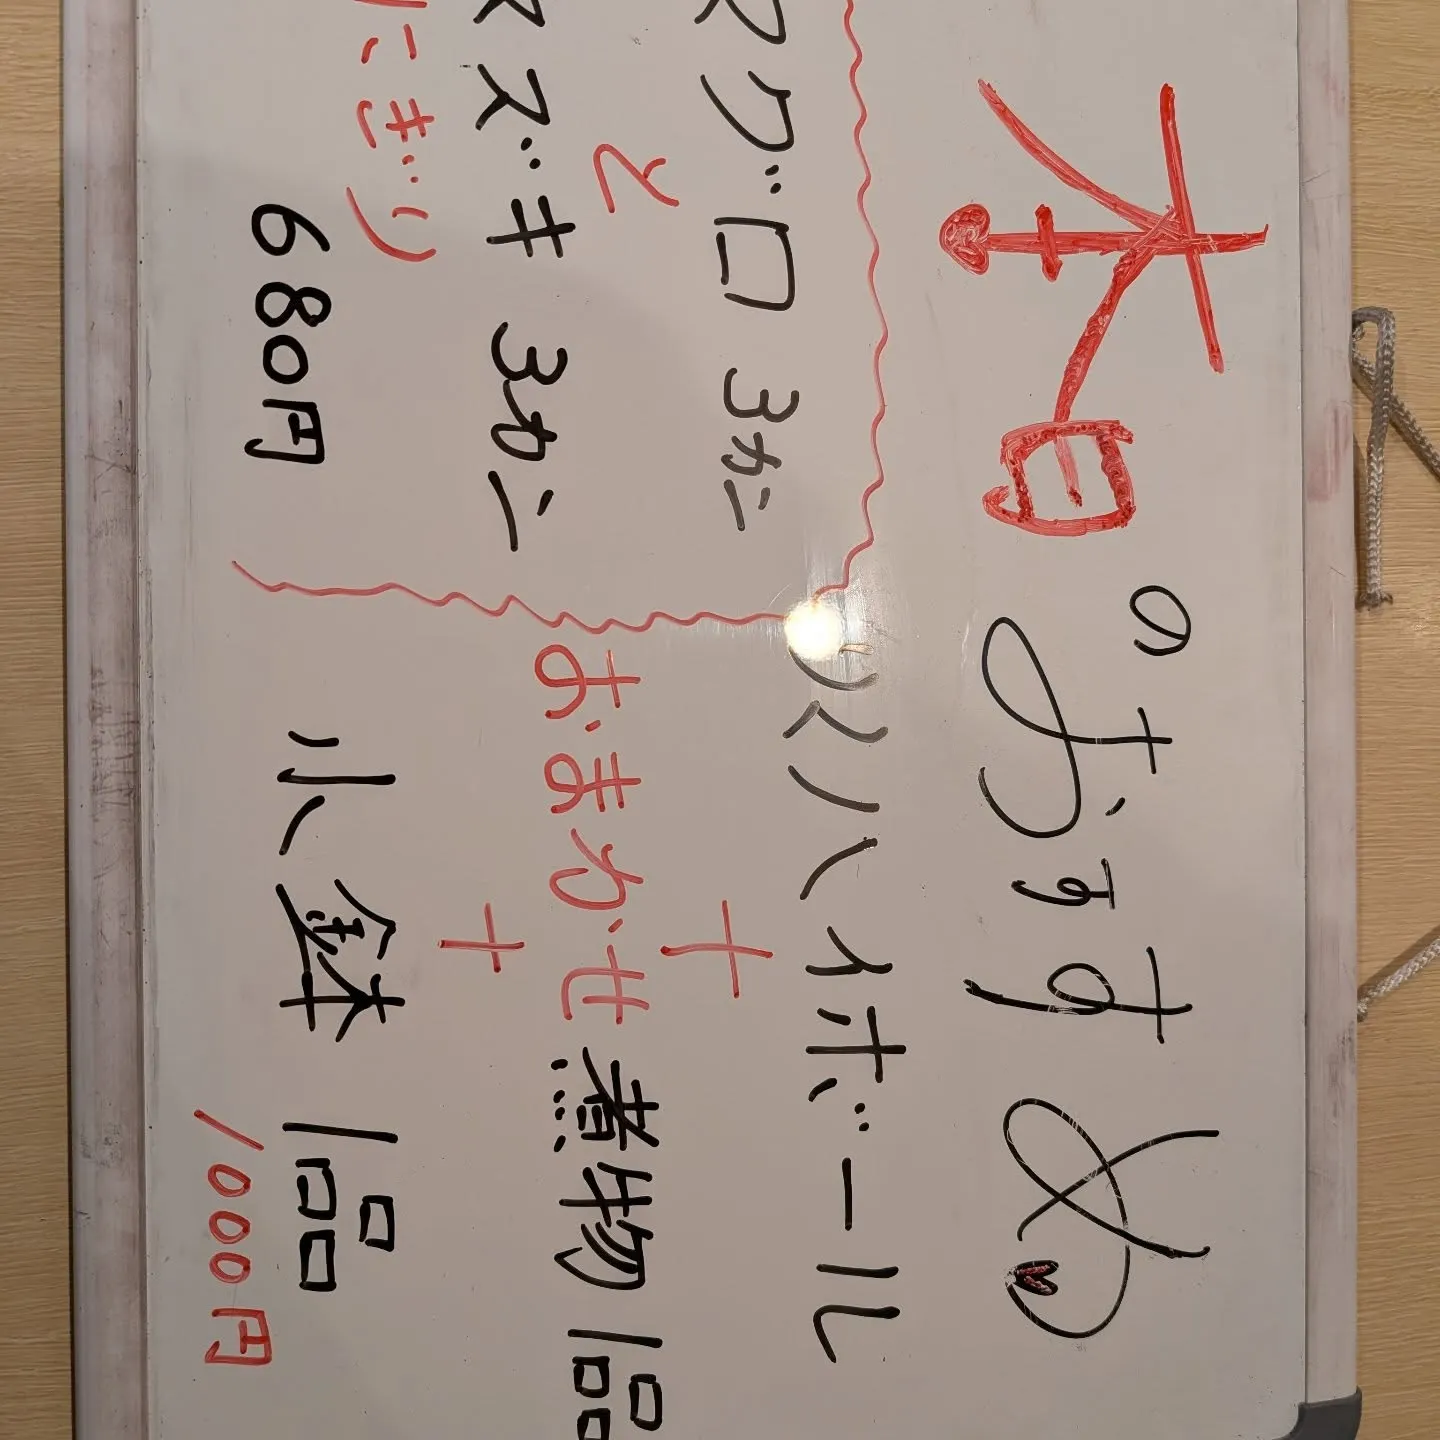 本日のおすすめ
マグロ 3カン
と
スズキ 3カン
にぎり
680円
ハイボール
+
おまかせ煮物 1品
+
小鉢 1品
1000円